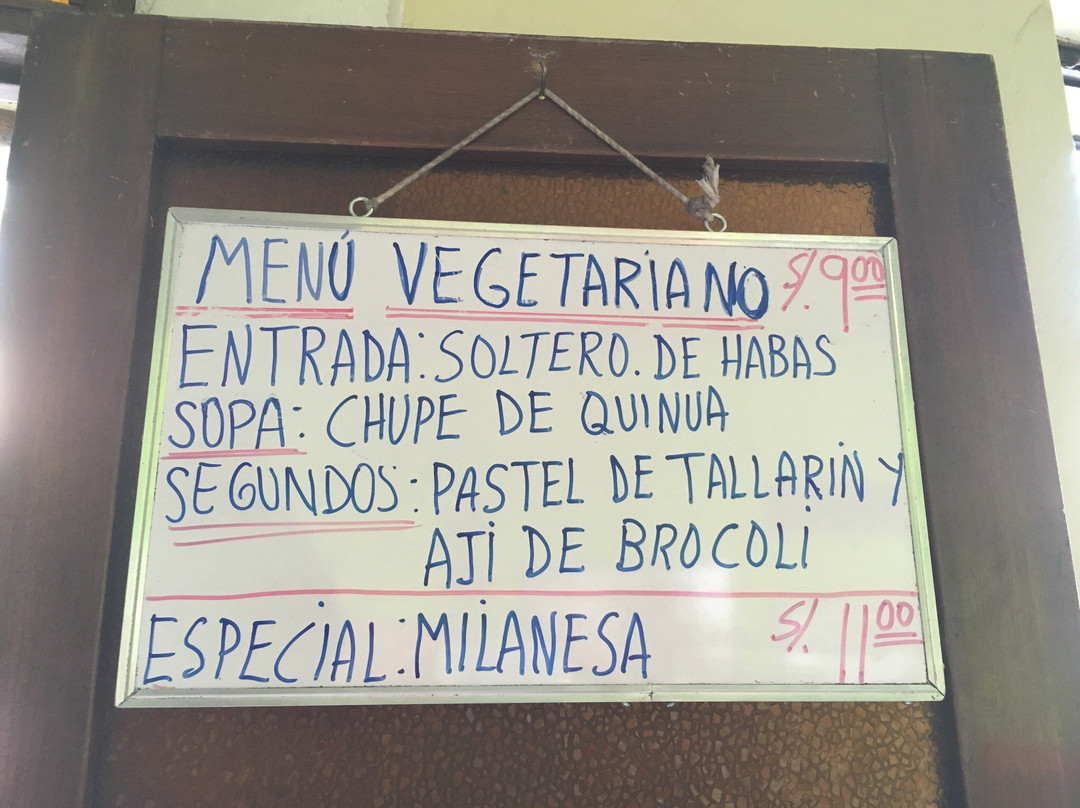 MENÚ VEGETARIANO S/. 9.00
ENTRADA: SOLTERO. DE HABAS
SOPA: CHUPE DE QUINUA
SEGUNDOS: PASTEL DE TALLARIN Y
AJI DE BROCOLI
ESPECIAL: MILANESA S/. 11.00